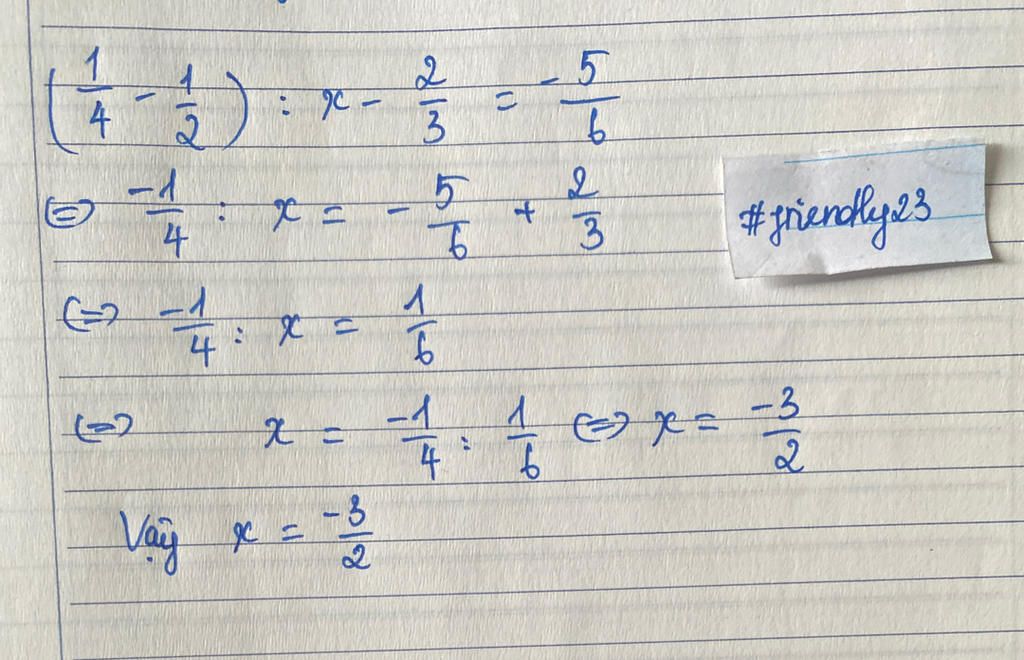 (1/4 - 1/2) : x - 2/3 = -5/6
⇔ -1/4 : x = -5/6 + 2/3
#friendly23
⇔ -1/4 : x = 1/6
⇔ x = -1/4 : 1/6 ⇔ x = -3/2
Vậy x = -3/2